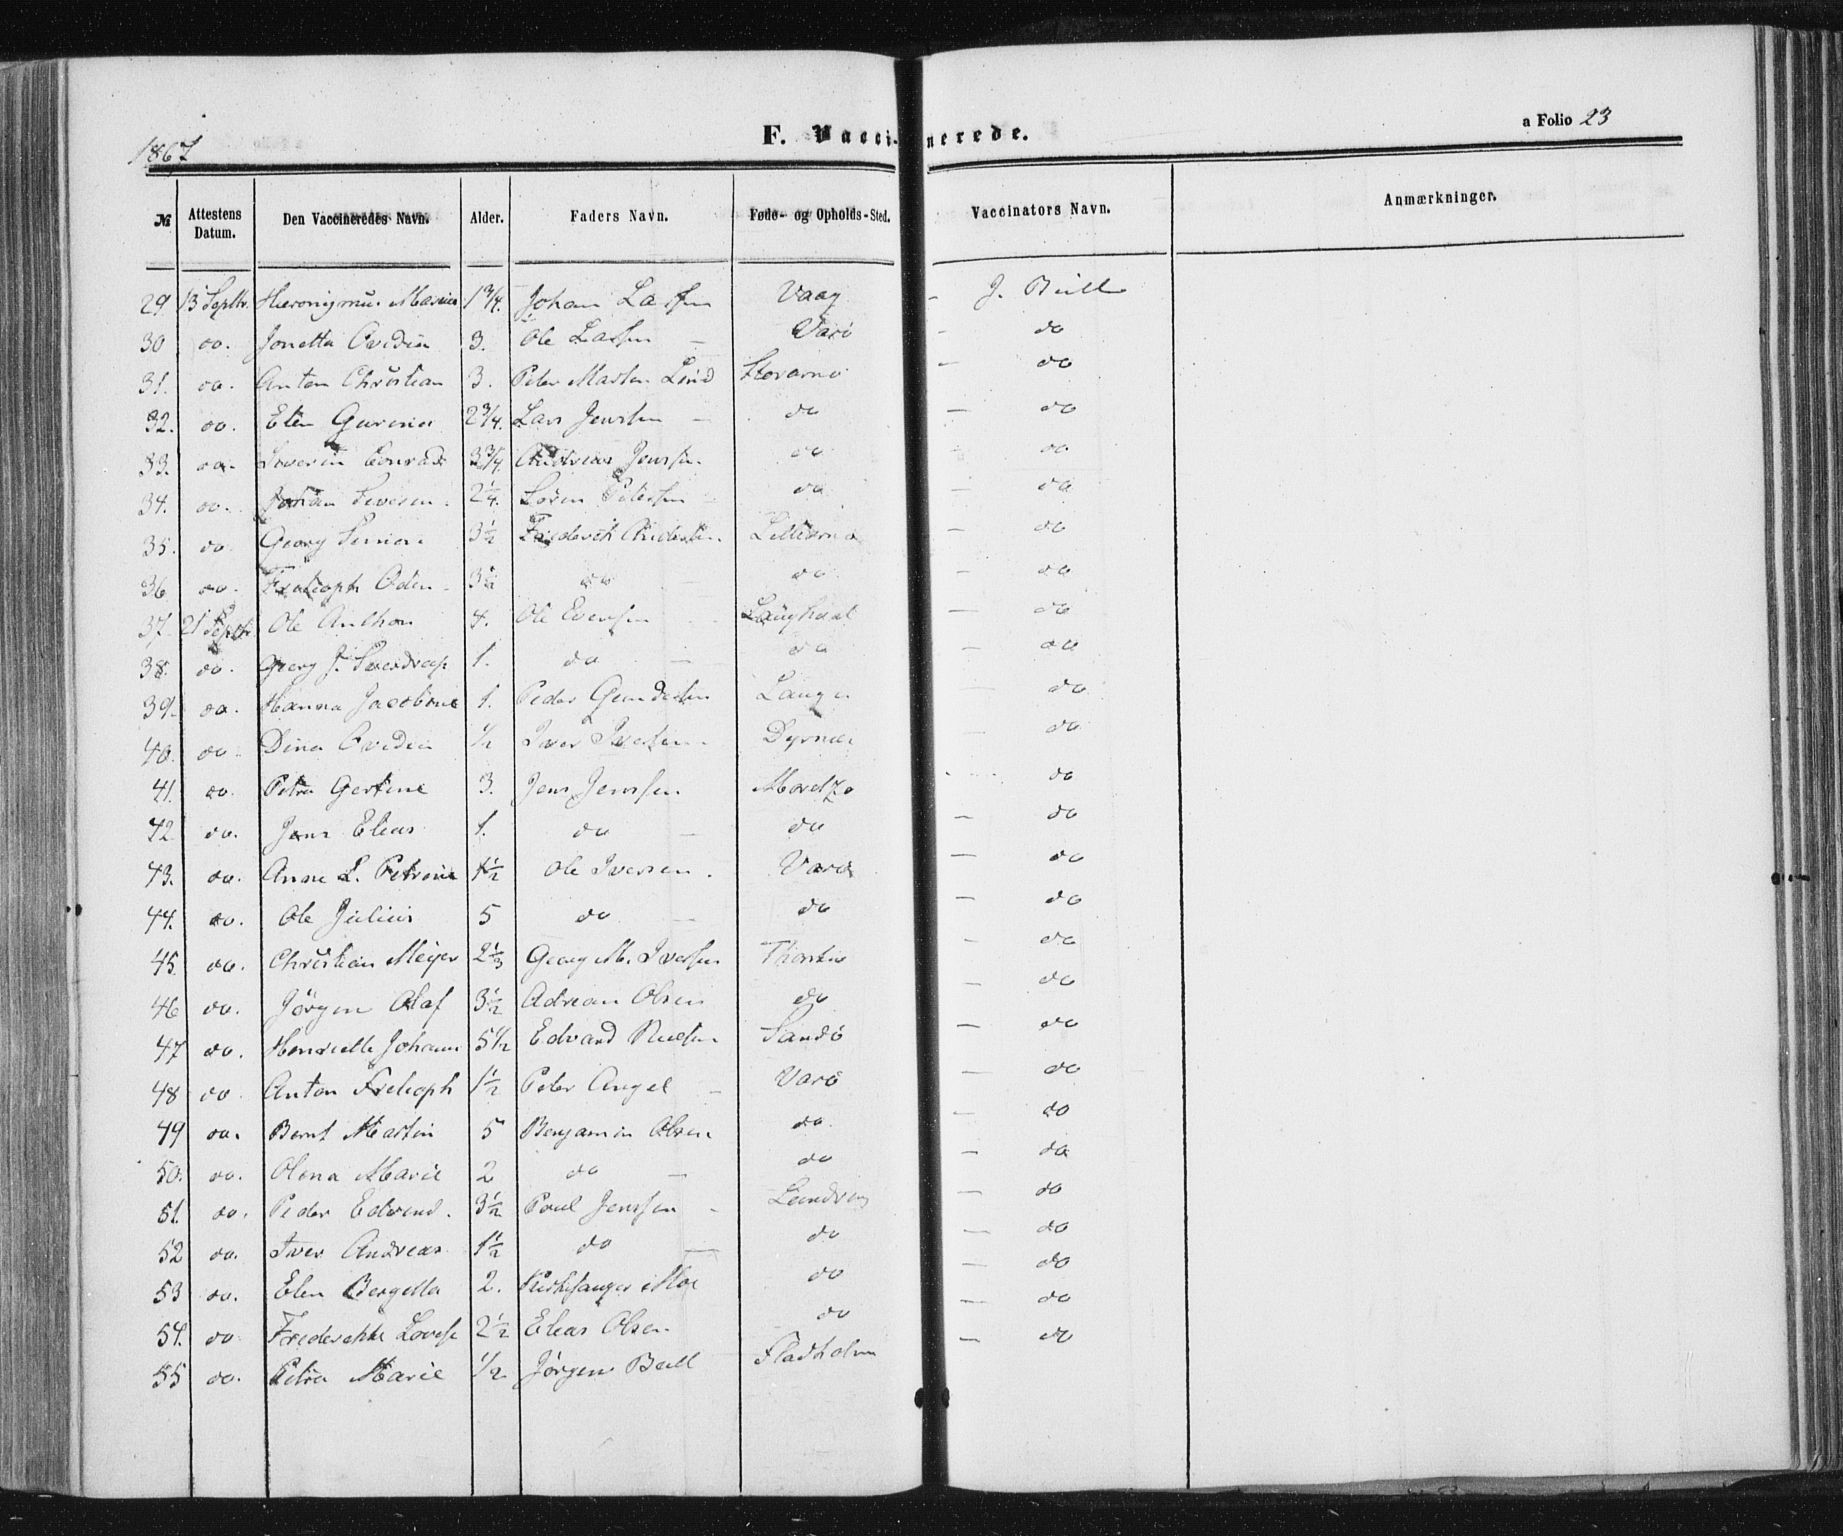 1867
F. Vaccinerede.
a Folio 23
№ Attestens Datum. Den Vaccineredes Navn. Alder. Faders Navn. Føde- og Opholds-Sted. Vaccinators Navn. Anmærkninger.
29 13 Septbr. 1 3/4. Johan Vaag - J. Bull
30 do. Jonetta Ovidia 3. Ole - Varö - do
31. do. Anton Christian 3. Peter Lind - do
32. do. Elen 2 3/4. Lars Jensen - do - do
33. do. Severin Conrad 3 3/4. Andreas Jensen do - do
34. do. Johan 2 1/4. Sören Petersen - do - do
35. do. Georg 3 1/2 - do
36 do. Oden - 3 1/2 do - do - do
37. 21 Septbr Ole Anthon 4. Ole Evensen - - do
38. do. Georg J. Sverdrup 1. do - do - do
39. do. Hanna Jacobine 1. Peder - do
40. do. Dina Ovidia 1/2 Iver Iversen - - do
41. do. Petra Gertine 3. Jens Jenssen - do
42 do. Jens Elias 1. do - do - do
43. do. Anne L. Petrine 1 1/2 Ole Iversen. Varö - do
44. do. Ole Julius 5 do - do - do
45. do. Christian Meyer 2 1/3 Georg M. Iversen - do
46 do. Jörgen Olaf 3 1/2 Adrian Olsen do - do
47 do. Henriette Johanne 5 1/2 Edvard Sandö - do
48 do. Anton 1 1/2 Peter Angel - Varö - do
49 do. Bernt Martin 5 Benjamin Olsen do. - do
50. do. Olena Marie 2 do - do - do
51. do. Peder Edvend. 3 1/2 Poul Jenssen - - do
52 do. Iver Andreas 1 1/2 do - do - do
53 do. Elen Bergetta 2. Kirkesanger Moe do - do
54. do Frederikke 2 1/2 Elias Olsen do - do
55 do. Petra Marie 1/2 Jörgen Bull Fladholm - do